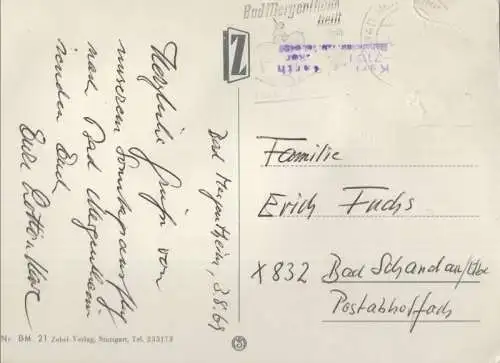 Bad Mergentheim
heilt
Z
Bad Mergentheim, 3.8.69
Herzliche Grüße von
unserem Sonntagsausflug
nach Bad Mergentheim
senden Euch
Eure Lotte + Klaus
Familie
Erich Fuchs
X 832 Bad Schandau/Elbe
Postabholfach
Nr. BM. 21 Zobel-Verlag, Stuttgart, Tel. 233173